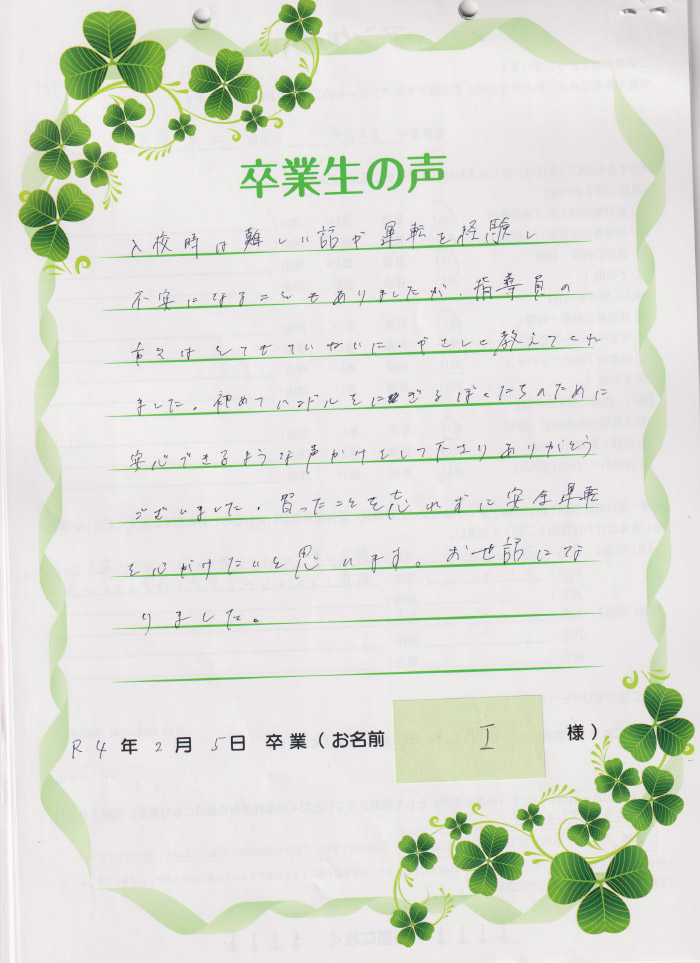 卒業生の声
入校時は難しい話や運転を経験し
不安になることもありましたが、指導員の
方々はとてもていねいに、やさしく教えてくれ
ました。初めてハンドルをにぎるぼくたちのために
安心できるような声かけをして下さりありがとう
ございました。習ったことを忘れずに安全運転
を心がけたいと思います。お世話にな
りました。
R4年2月5日 卒業(お名前 I 様)